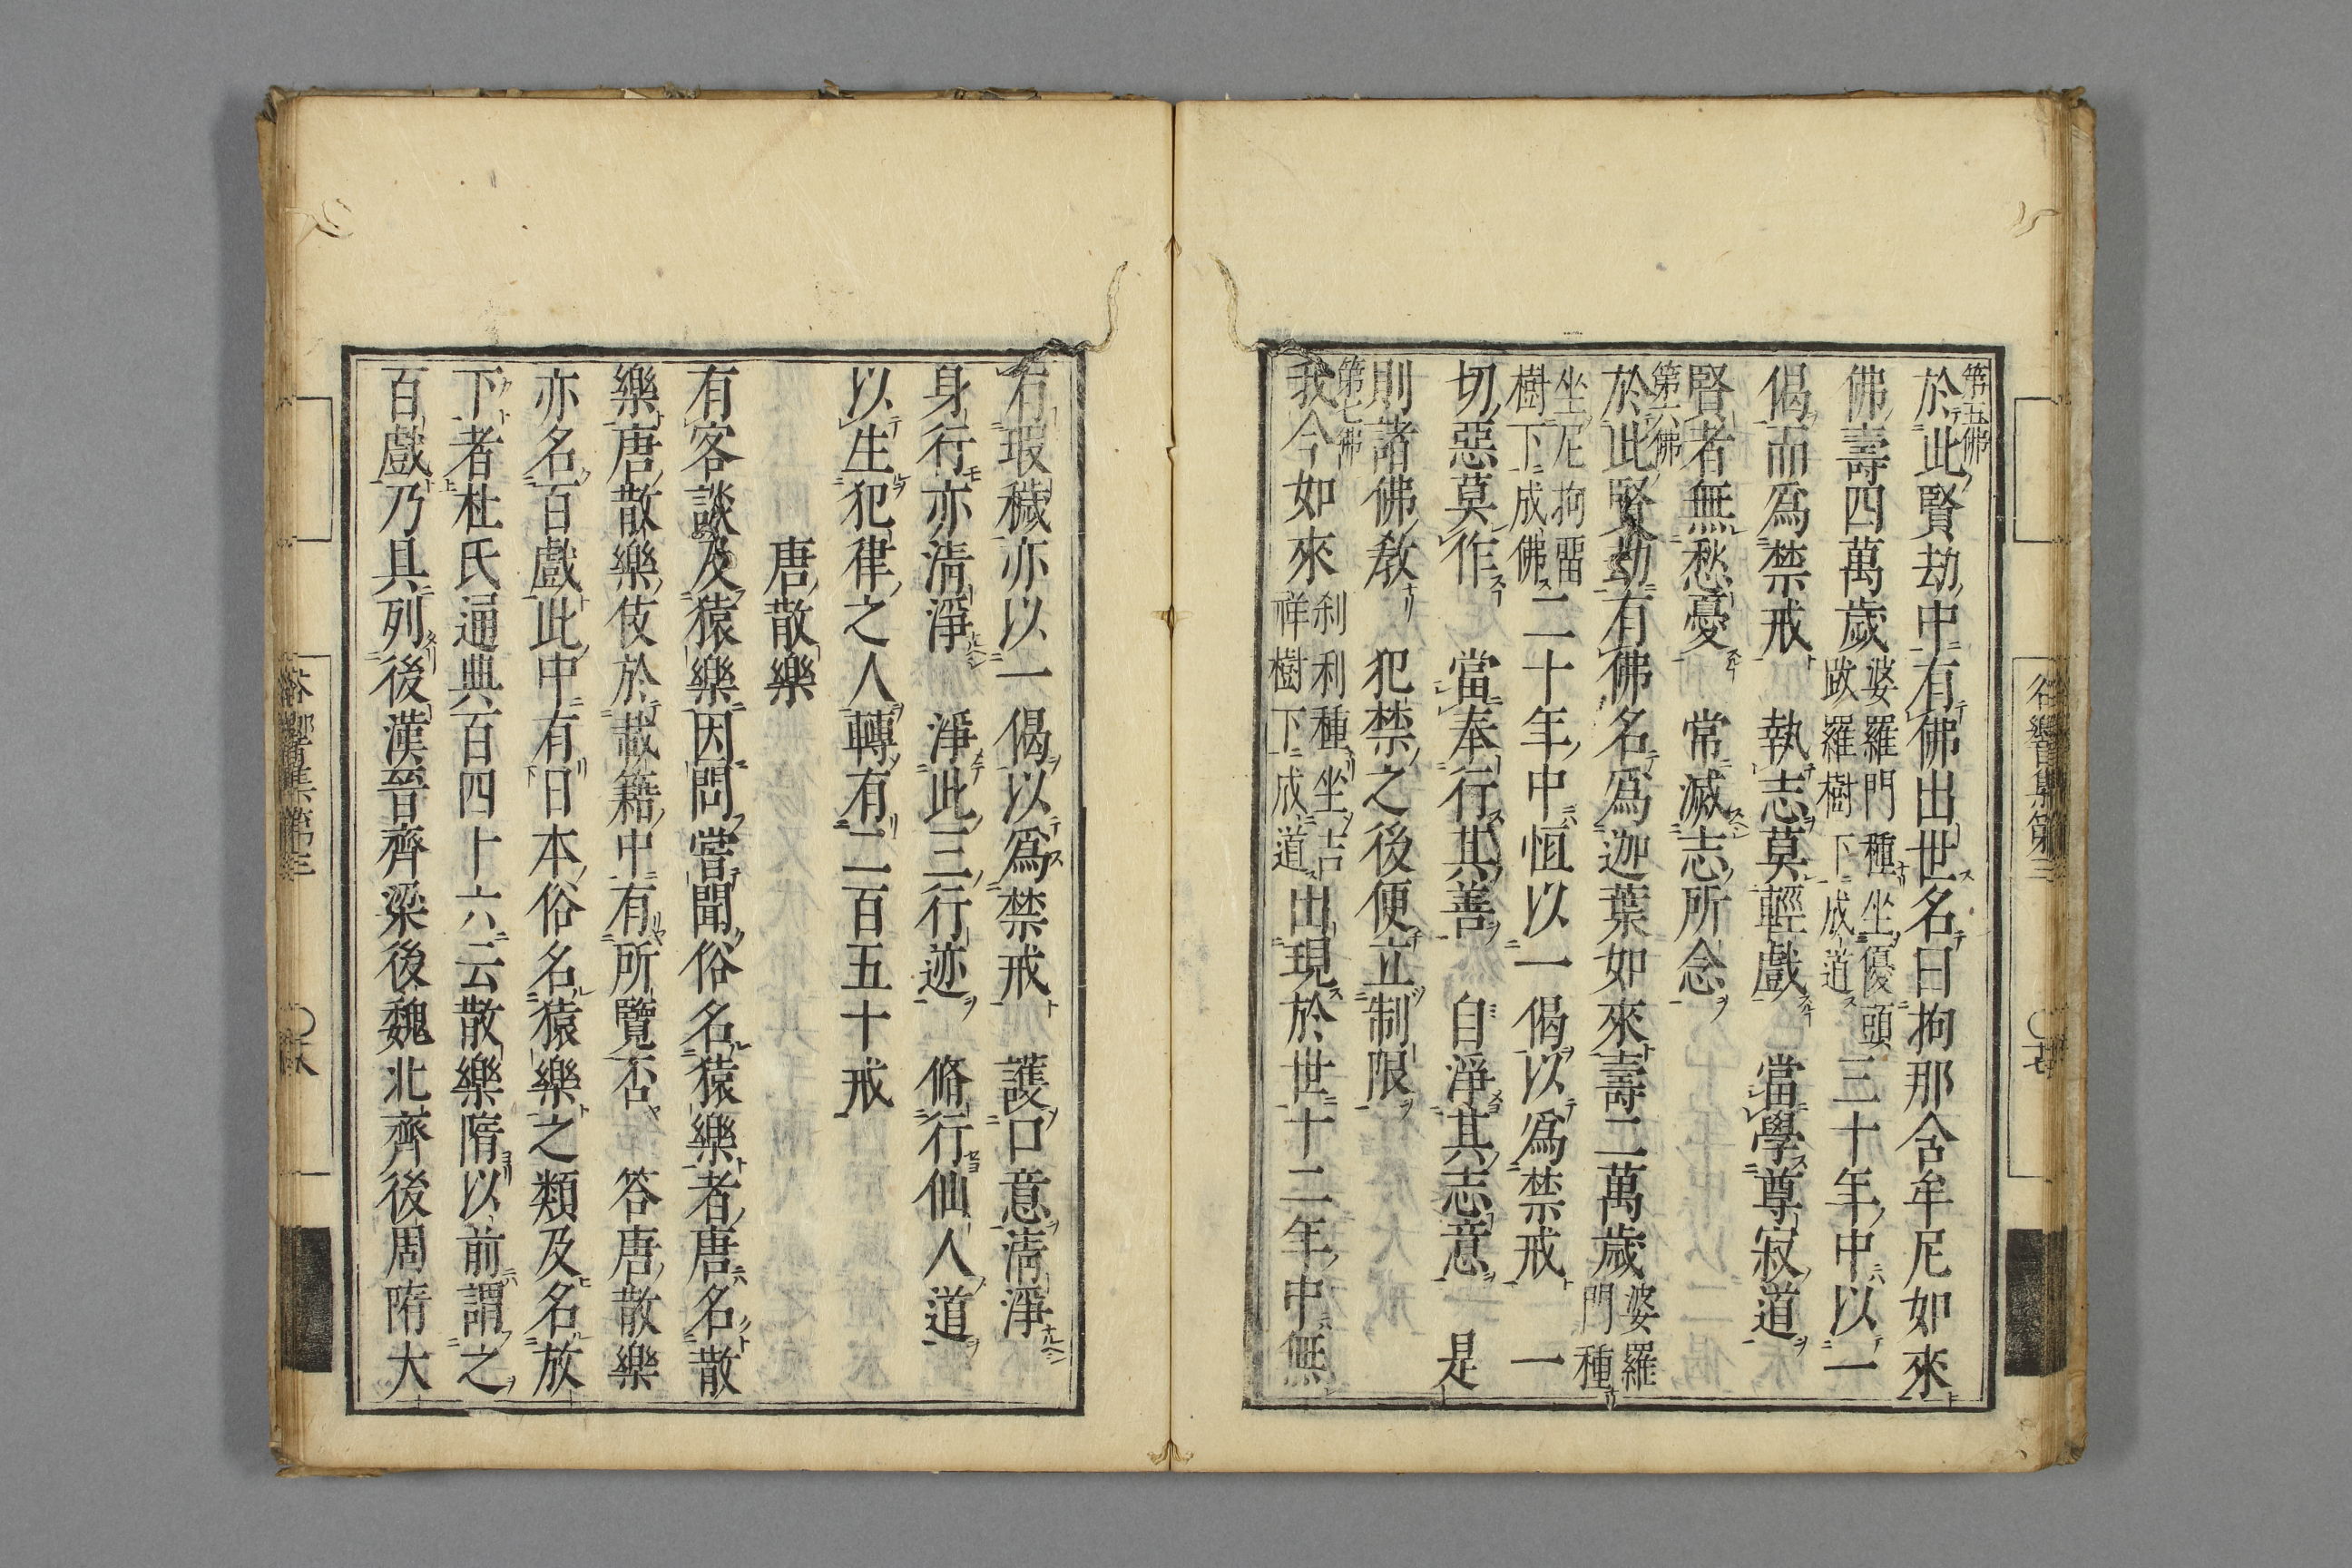 第五佛
於此賢劫中有佛出世名曰拘那含牟尼如來
佛壽四萬歲婆羅門種坐優頭跋羅樹下成道三十年中以一
偈而爲禁戒 執志莫輕戲 當學尊寂道
賢者無愁憂 常滅志所念
第六佛
於此賢劫有佛名爲迦葉如來壽二萬歲婆羅門種
坐尼拘留樹下成佛二十年中恒以一偈以爲禁戒 一
切惡莫作 當奉行其善 自淨其志意 是
則諸佛教 犯禁之後便立制限
第七佛
我今如來剎利種坐吉祥樹下成道出現於世十二年中無
有瑕穢亦以一偈以爲禁戒 護口意淸淨
身行亦淸淨 淨此三行迹 脩行仙人道
以生犯律之人轉有二百五十戒
唐散樂
有客談及猿樂因問嘗聞俗名猿樂者唐名散
樂唐散樂伎於載籍中有所覽否 答唐散樂
亦名百戲此中有日本俗名猿樂之類及名放
下者杜氏通典百四十六云散樂隋以前謂之
百戲乃具列後漢晉齊梁後魏北齊後周隋大
谷響集第三
谷響集第三